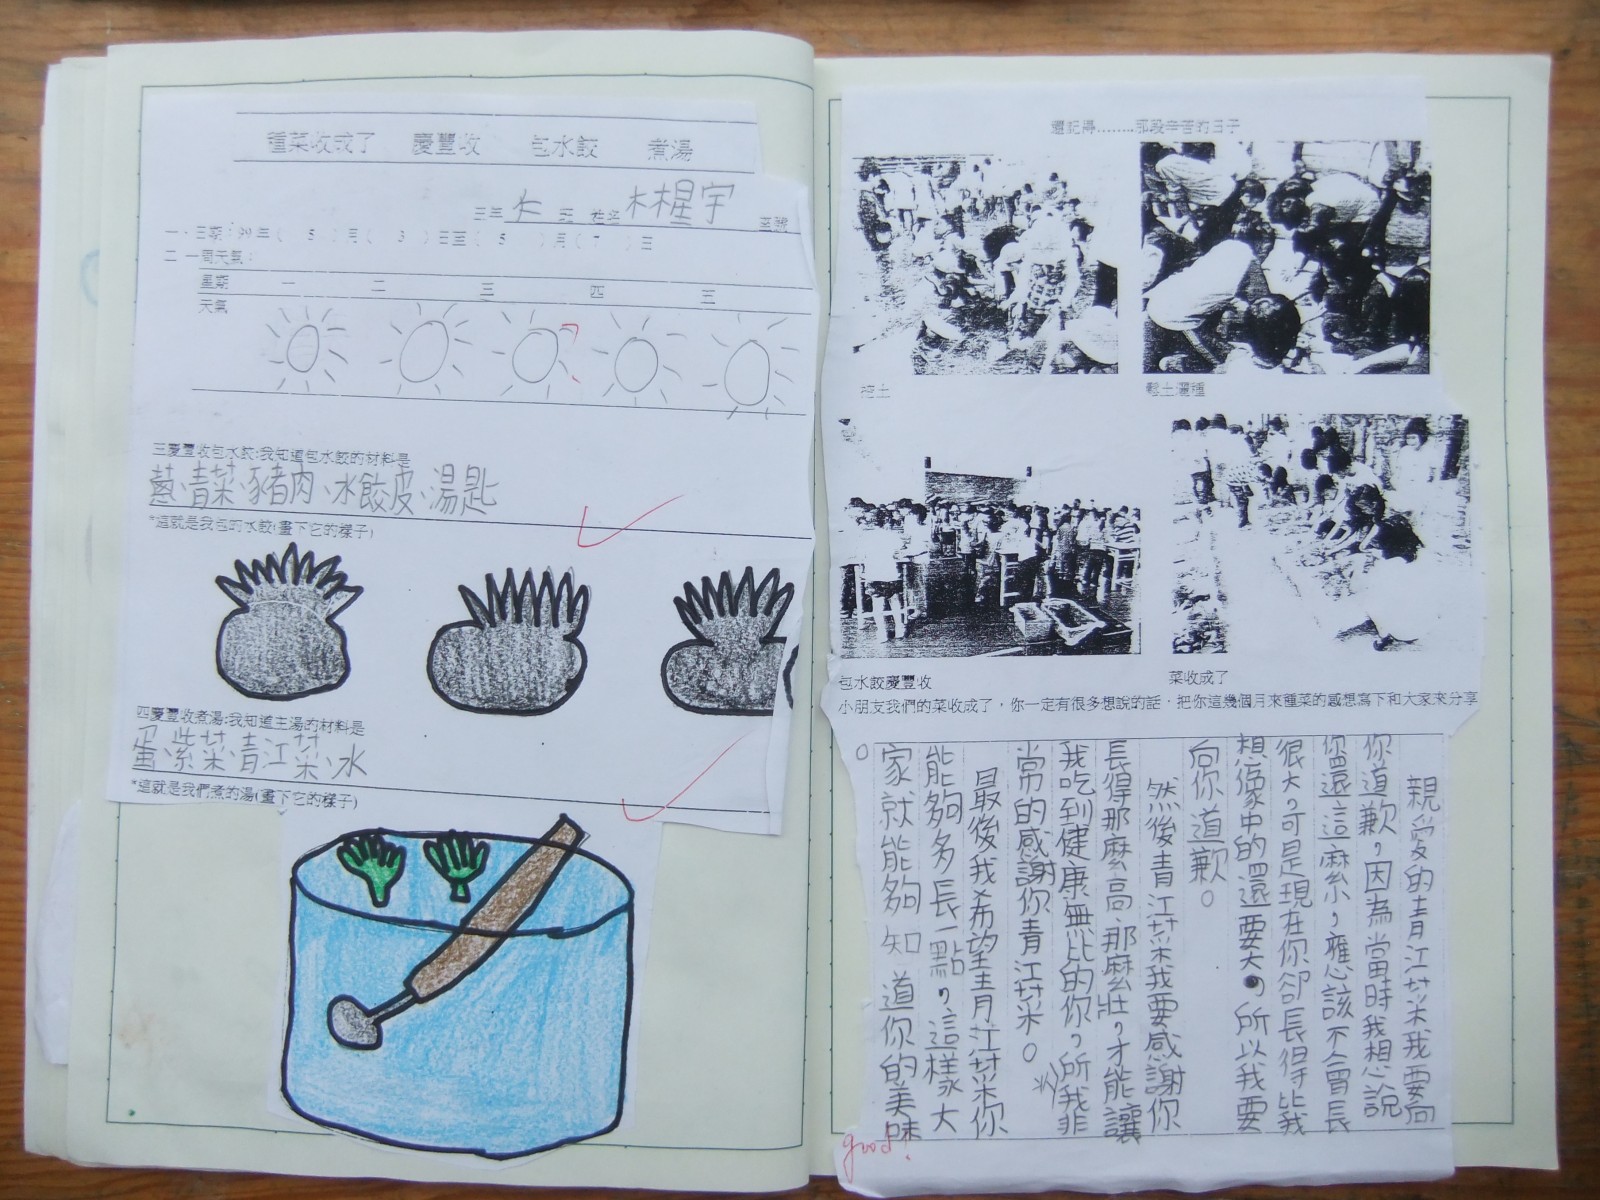 種菜收成了 慶豐收 包水餃 煮湯
三年 仁 班 姓名 林星宇 座號
一、日期:99年( 5 )月( 3 )日至( 5 )月( 7 )日
二 一周天氣:
星期 一 二 三 四 五
天氣
三慶豐收包水餃:我知道包水餃的材料是
青菜、豬肉、水餃皮、湯匙
*這就是我包的水餃(畫下它的樣子)
四慶豐收煮湯:我知道主湯的材料是
蛋、紫菜、青江菜、水
*這就是我們煮的湯(畫下它的樣子)
還記得........那段辛苦的日子
挖土
鬆土灑種
包水餃慶豐收
菜收成了
小朋友我們的菜收成了，你一定有很多想說的話，把你這幾個月來種菜的感想寫下和大家來分享
親愛的青江菜我要向
你道歉，因為當時我想說
你還這麼小，應該不會長
很大，可是現在你卻長得比我
想像中的還要大，所以我要
向你道歉。
然後青江菜我要感謝你
長得那麼高、那麼壯，才能讓
我吃到健康無比的你，所我非
常的感謝你青江菜。
最後我希望青江菜你
能夠多長一點，這樣大
家就能夠知道你的美味
。
good!